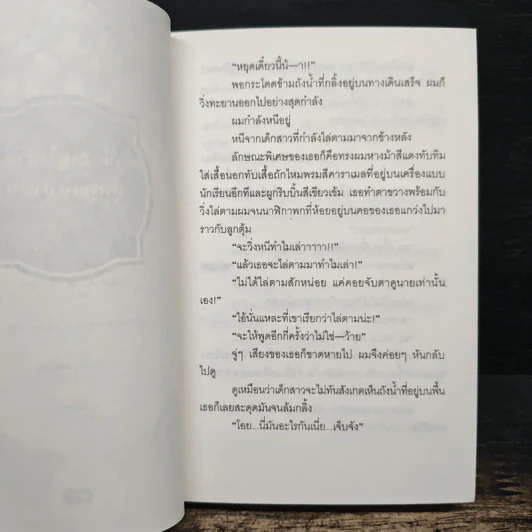 “หยุดเดี๋ยวนี้น้—า!!”
พอกระโดดข้ามถังน้ำที่กลิ้งอยู่บนทางเดินเสร็จ ผมก็
วิ่งทะยานออกไปอย่างสุดกำลัง
ผมกำลังหนีอยู่
หนีจากเด็กสาวที่กำลังไล่ตามมาจากข้างหลัง
ลักษณะพิเศษของเธอก็คือทรงผมหางม้าสีแดงทับทิม
ใส่เสื้อนอกทับเสื้อถักไหมพรมสีคาราเมลที่อยู่บนเครื่องแบบ
นักเรียนอีกทีและผูกริบบิ้นสีเขียวเข้ม เธอทำตาขวางพร้อมกับ
วิ่งไล่ตามผมจนนาฬิกาพกที่ห้อยอยู่บนคอของเธอแกว่งไปมา
ราวกับลูกตุ้ม
“จะวิ่งหนีทำไมเล่าาาาา!!”
“แล้วเธอจะไล่ตามมาทำไมเล่า!”
“ไม่ได้ไล่ตามสักหน่อย แค่คอยจับตาดูนายเท่านั้น
เอง!”
“ไอ้นั่นแหละที่เขาเรียกว่าไล่ตามน่ะ!”
“จะให้พูดอีกกี่ครั้งว่าไม่ใช่—ว้าย”
จู่ๆ เสียงของเธอก็ขาดหายไป ผมจึงค่อยๆ หันกลับ
ไปดู
ดูเหมือนว่าเด็กสาวจะไม่ทันสังเกตเห็นถังน้ำที่อยู่บนพื้น
เธอก็เลยสะดุดมันจนล้มกลิ้ง
“โอย...นี่มันอะไรกันเนี่ย...เจ็บจัง”